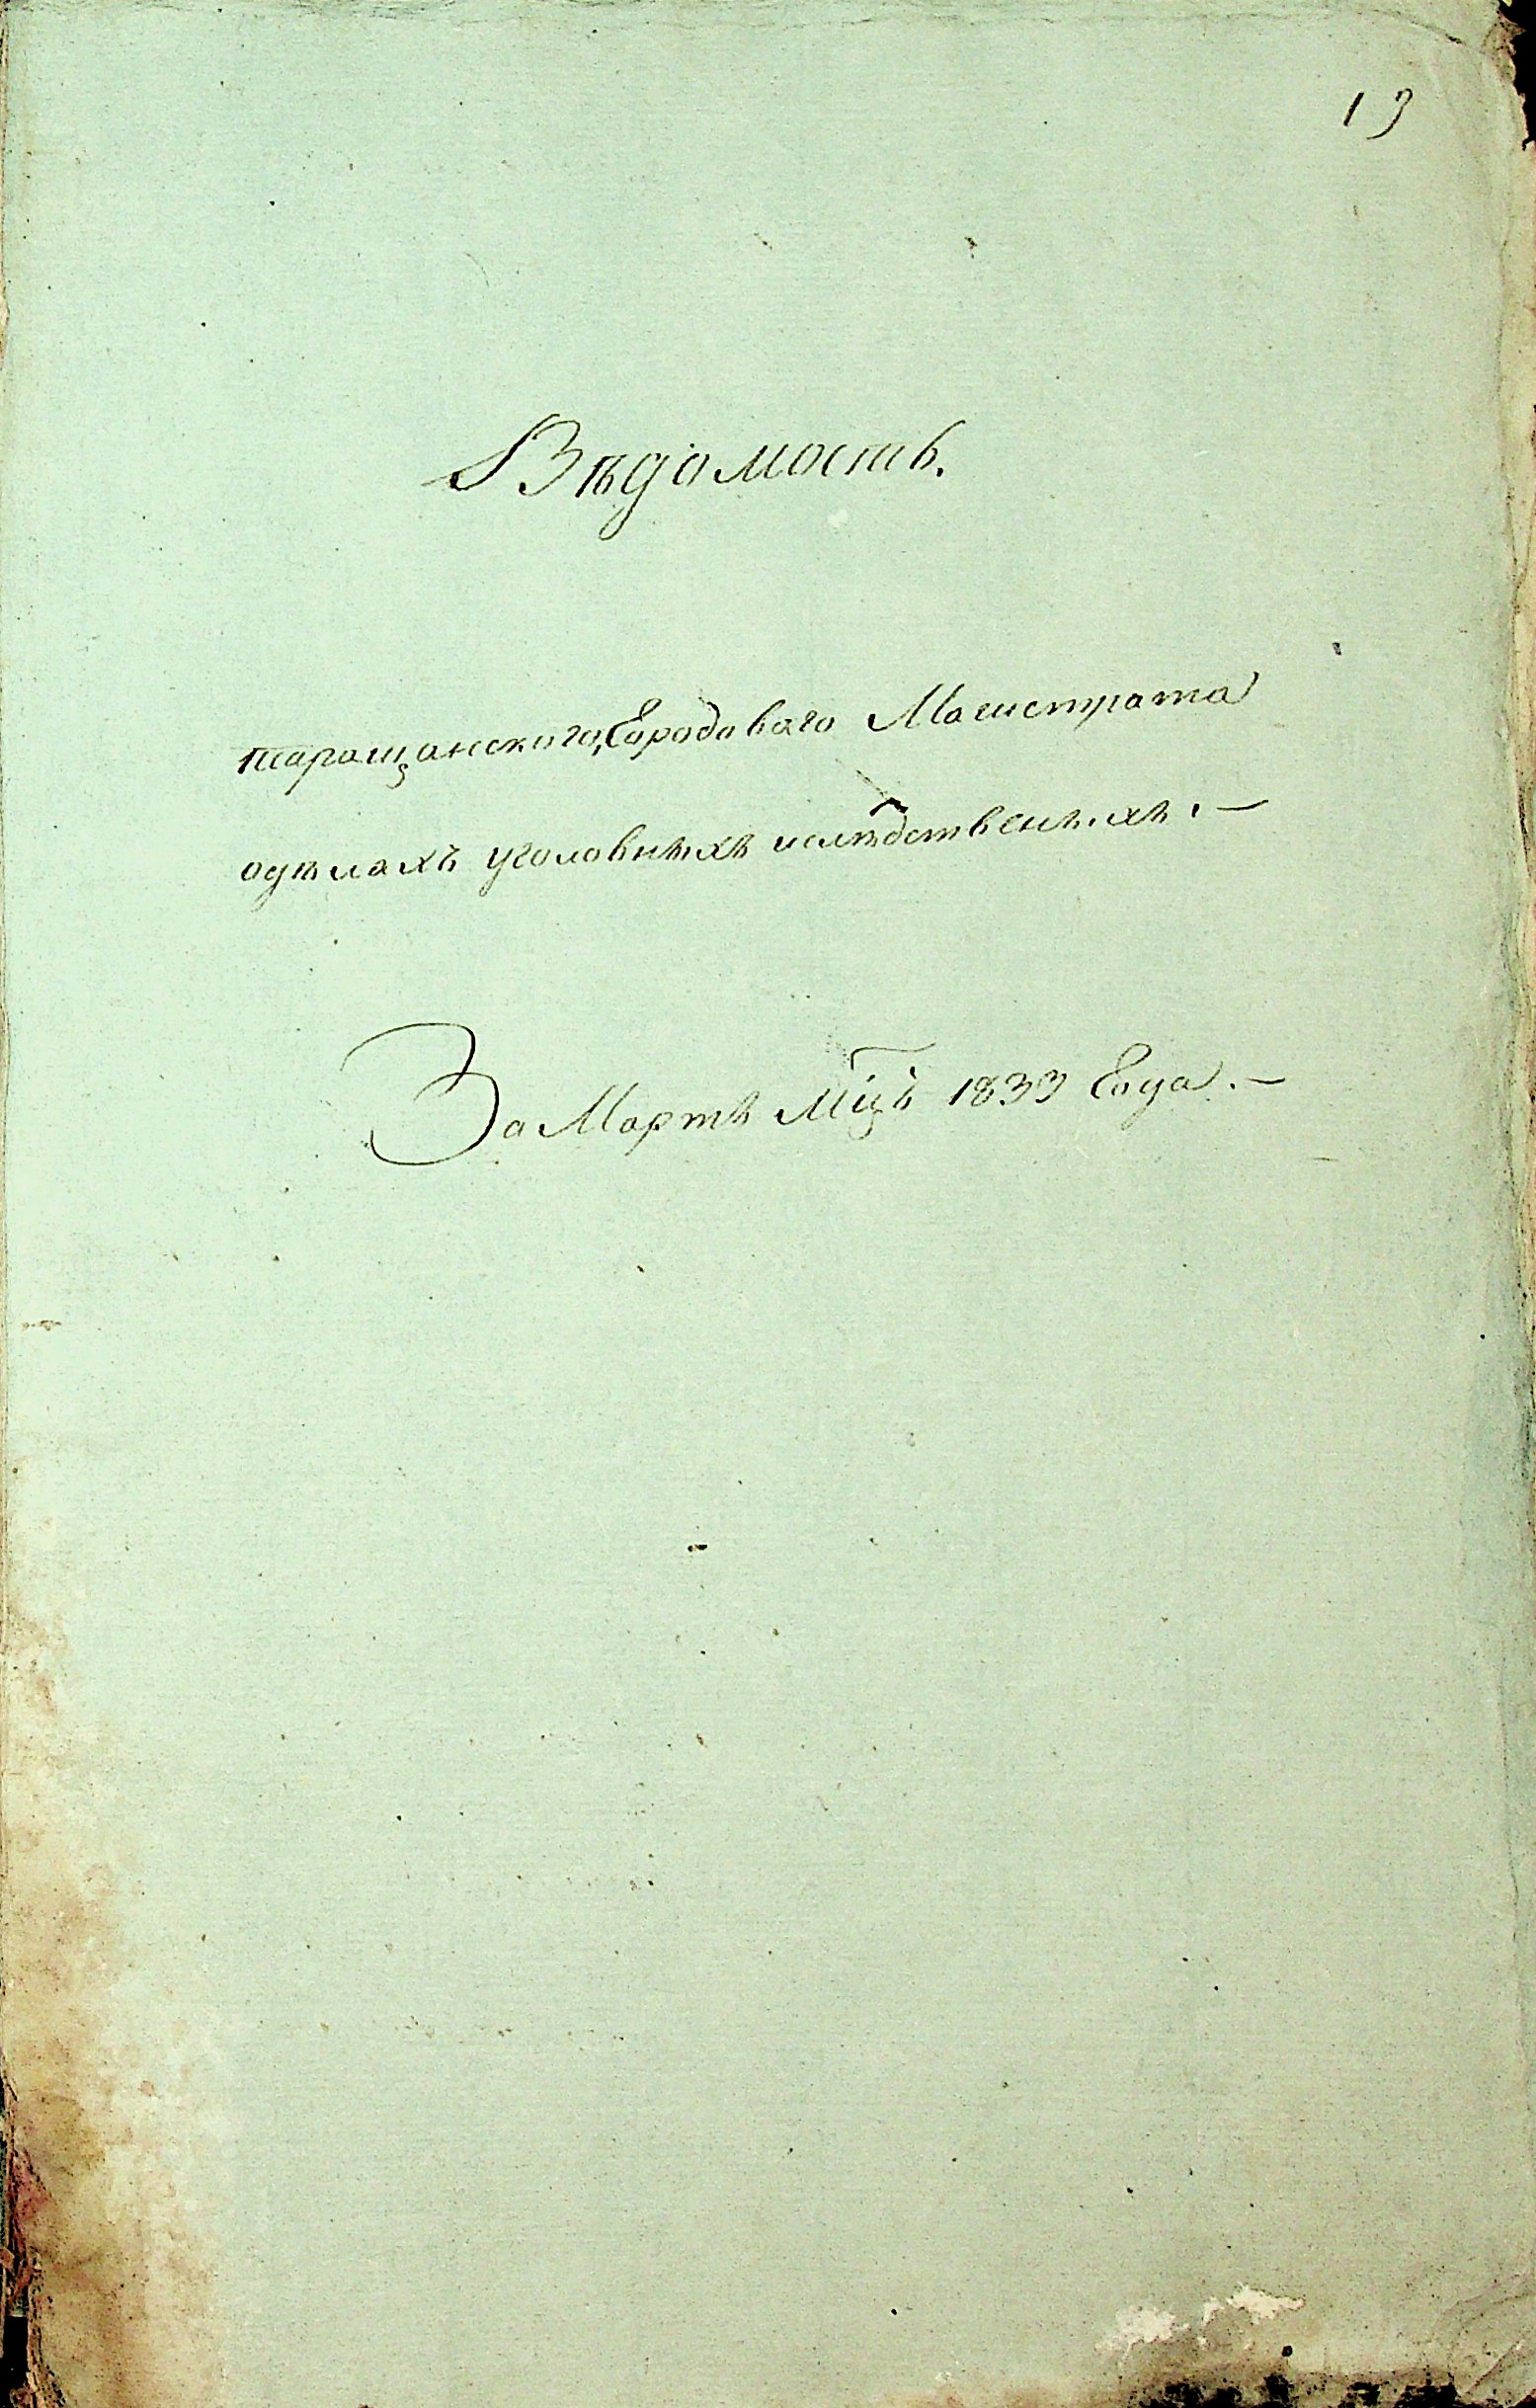 19
Вѣдомость.
таращанского, Городоваго Магистрата
одѣлахъ уголовныхъ ислѣдственыхъ. —
За Мартъ Мцъ 1833 Года. —